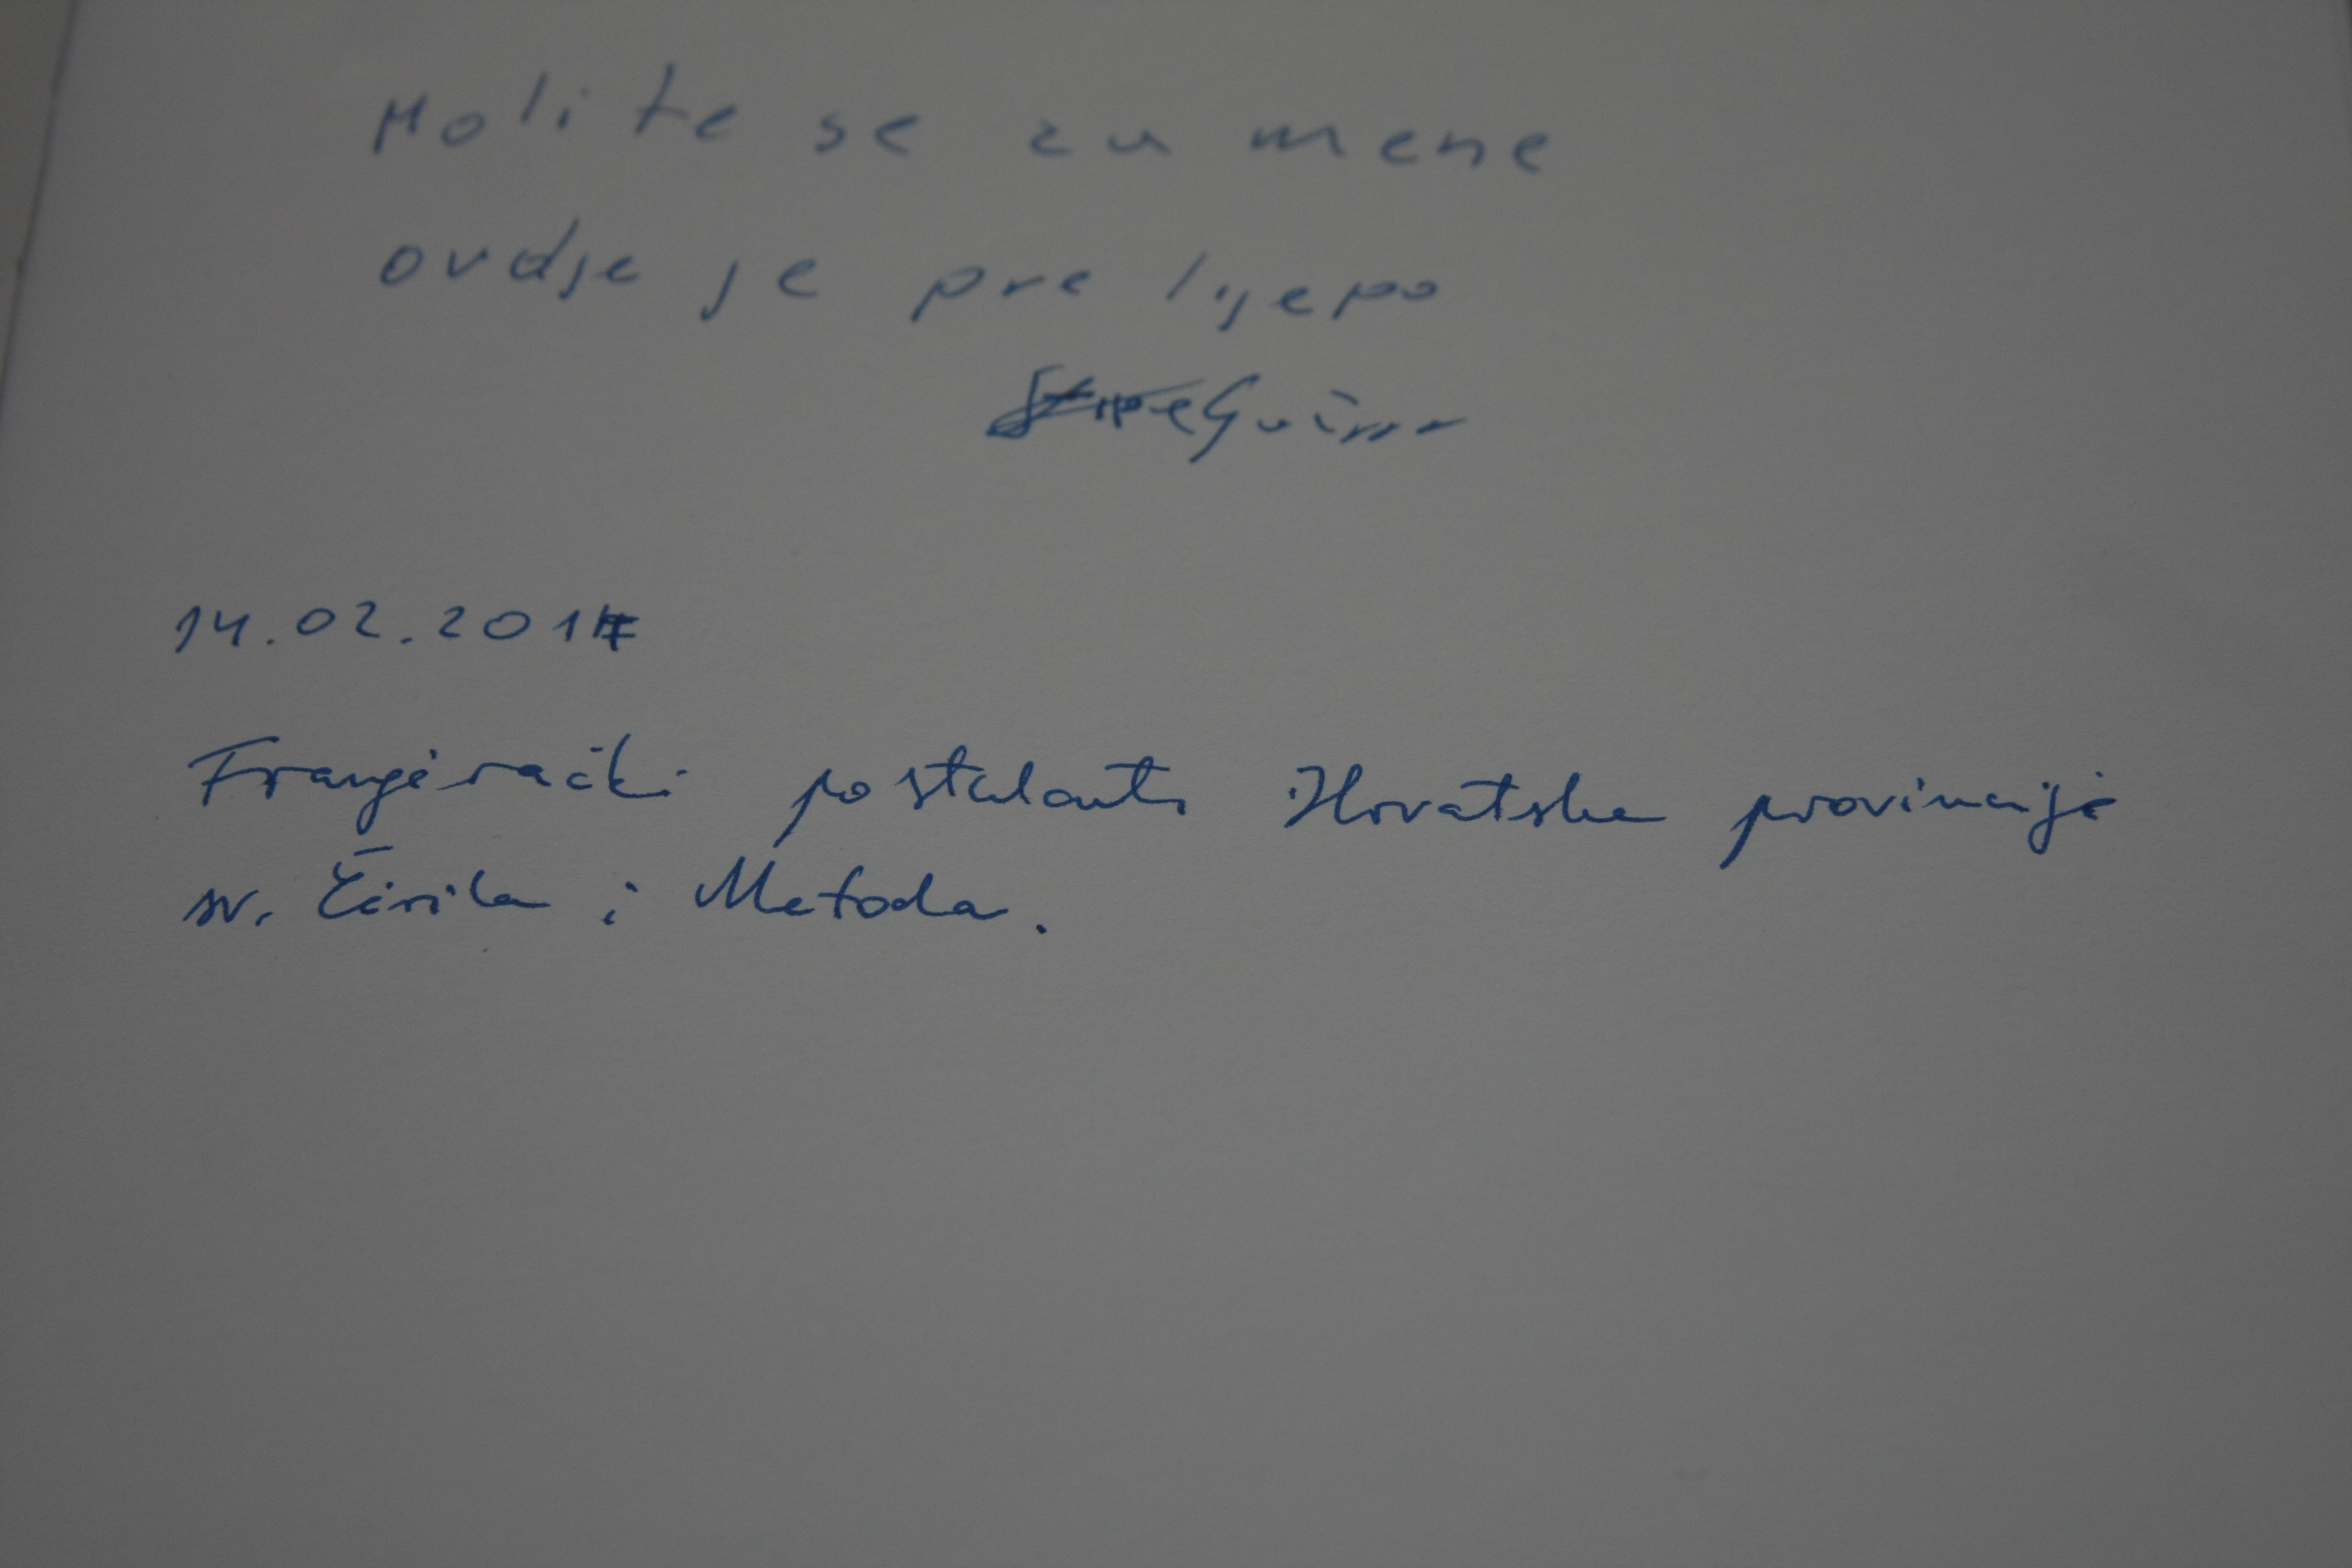 Molite se za mene
ovdje je pre lijepo
14.02.2017
Franjevački postulanti Hrvatske provincije
sv. Ćirila i Metoda.